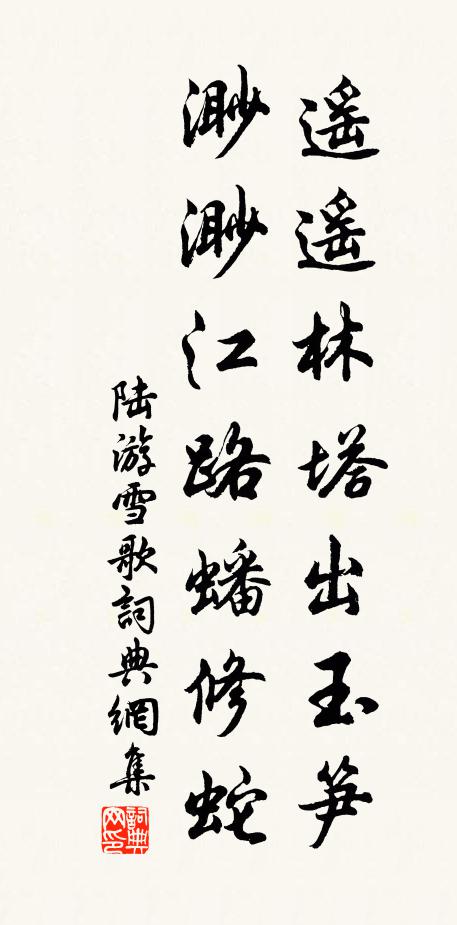 遥遥林塔出玉笋
渺渺江路蟠修蛇
陆游雪歌詞典網集
詞典網印